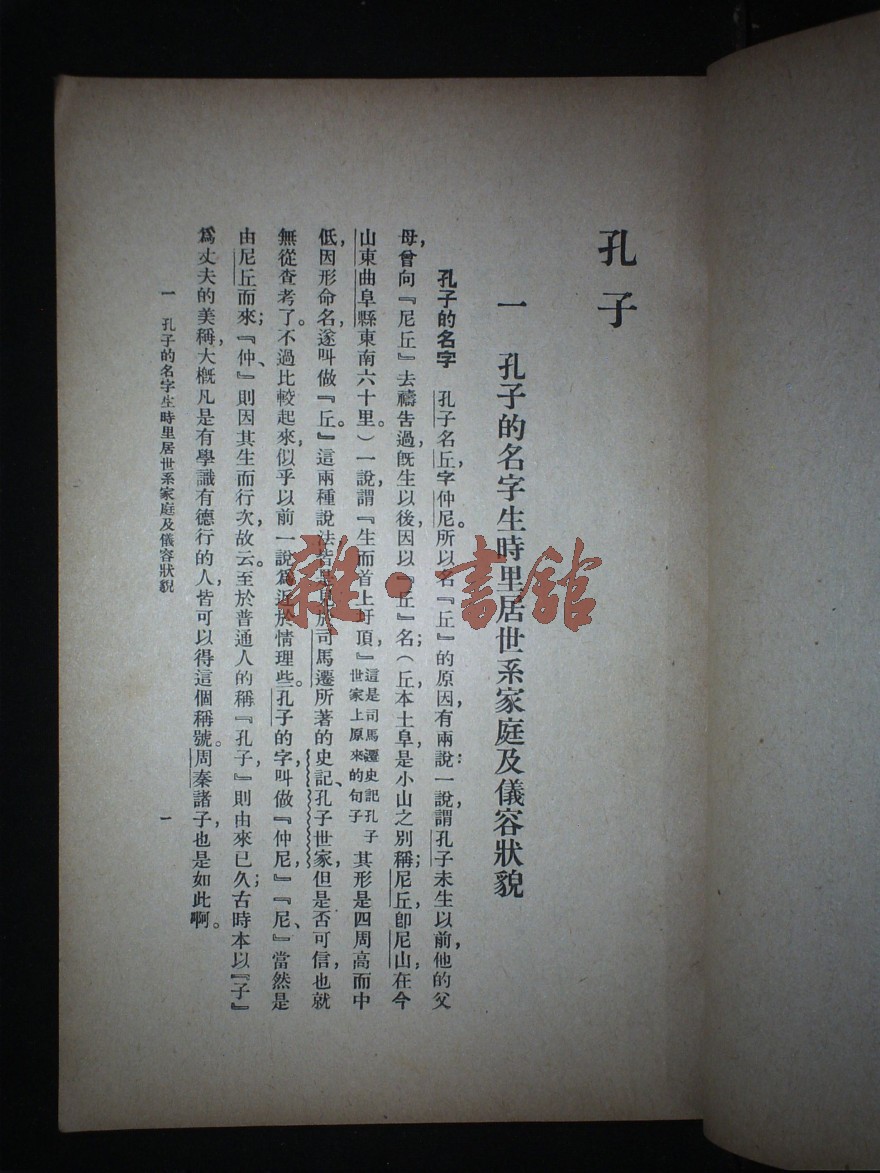 孔子
一　孔子的名字生時里居世系家庭及儀容狀貌
孔子的名字　孔子名丘，字仲尼。所以名『丘』的原因，有兩說：一說，謂孔子未生以前，他的父
母，曾向『尼丘』去禱告過，旣生以後，因以『丘』名；（丘，本土阜，是小山之別稱；尼丘，卽尼山，在今
山東曲阜縣東南六十里。）一說，謂『生而首上圩頂，』這是司馬遷史記孔子世家上原來的句子其形是四周高而中
低，因形命名，遂叫做『丘。』這兩種說法，皆見於司馬遷所著的史記、孔子世家，但是否可信，也就
無從查考了。不過比較起來，似乎以前一說爲近於情理些。孔子的字，叫做『仲尼，』『尼、』當然是
由尼丘而來；『仲、』則因其生而行次，故云。至於普通人的稱『孔子，』則由來已久；古時本以『子』
爲丈夫的美稱，大槪凡是有學識有德行的人，皆可以得這個稱號。周秦諸子，也是如此啊。
一　孔子的名字生時里居世系家庭及儀容狀貌
一
雜·書館